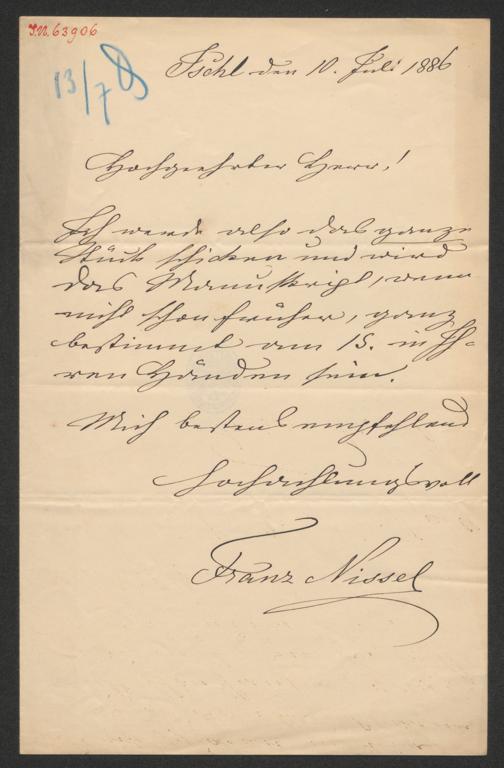 I.N. 63906
13/7
Ischl den 10. Juli 1886
Hochgeehrter Herr!
Ich werde also das ganze
Stück schicken und wird
das Manuskript, wenn
nicht schon früher, ganz
bestimmt am 15. in Ih-
ren Händen sein.
Mich bestens empfehlend
Hochachtungsvoll
Franz Nissel